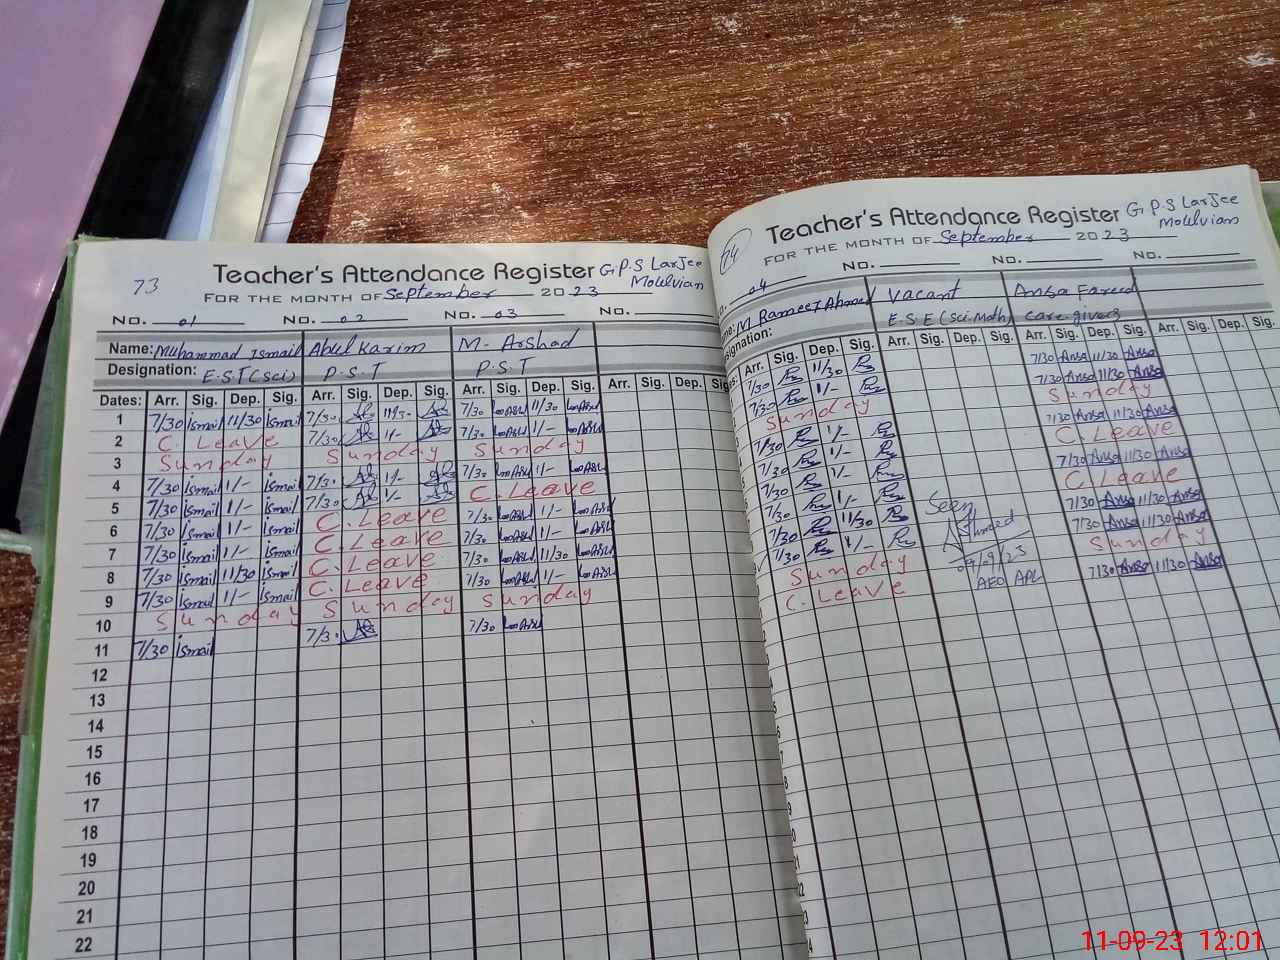 73
Teacher's Attendance Register G.P.S LarJee
Molelvian
FOR THE MONTH OF September 2023
No. 01 No. 02 No. 03 No.
Name: Muhammad Ismail Abul Karim M. Arshad
Designation: E.S.T (Sci) P.S.T P.S.T
Dates: Arr. Sig. Dep. Sig. Arr. Sig. Dep. Sig. Arr. Sig. Dep. Sig. Arr. Sig. Dep. Sig.
1 7/30 ismail 11/30 ismail 7/30 7/30 11/30
2 C. Leave 7/30 1/- 7/30 1/-
3 Sunday Sunday Sunday
4 7/30 ismail 1/- ismail 7/30 1/- 7/30 1/-
5 7/30 ismail 1/- ismail 7/30 1/- C. Leave
6 7/30 ismail 1/- ismail C. Leave 7/30 1/-
7 7/30 ismail 1/- ismail C. Leave 7/30 1/-
8 7/30 ismail 11/30 ismail C. Leave 7/30 11/30
9 7/30 ismail 1/- ismail C. Leave 7/30 1/-
10 Sunday Sunday Sunday
11 7/30 ismail 7/30 7/30
12
13
14
15
16
17
18
19
20
21
22
74
Teacher's Attendance Register G.P.S LarJee
Molelvian
FOR THE MONTH OF September 2023
No. 04 No. No. No.
M Rameez Ahmed Vacant Ansa Fareed
Designation: E.S.E (Sci.Math) care givers
Arr. Sig. Dep. Sig. Arr. Sig. Dep. Sig. Arr. Sig. Dep. Sig. Arr. Sig. Dep. Sig.
7/30 11/30 7/30 Ansa 11/30 Ansa
7/30 1/- 7/30 Ansa 11/30 Ansa
Sunday Sunday
7/30 1/- 7/30 Ansa 11/30 Ansa
7/30 1/- C. Leave
7/30 1/- 7/30 Ansa 11/30 Ansa
7/30 1/- C. Leave
7/30 11/30 7/30 Ansa 11/30 Ansa
7/30 1/- 7/30 Ansa 11/30 Ansa
Sunday Sunday
C. Leave 7/30 Ansa 11/30 Ansa
Seen
09/09/23
AEO
11-09-23 12:01